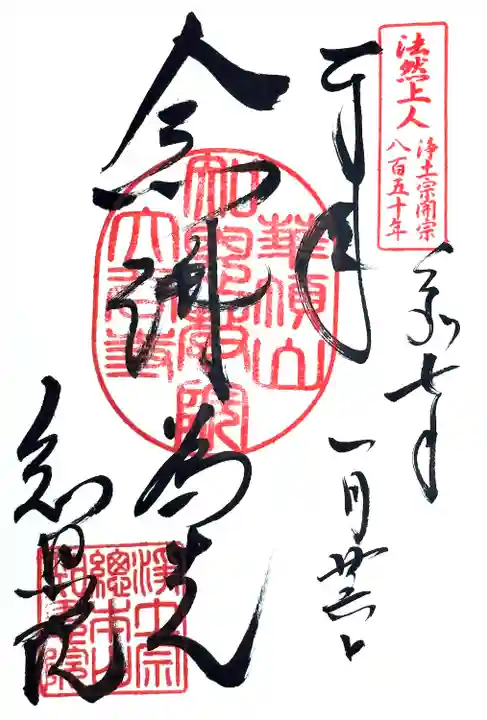 法然上人
浄土宗開宗
八百五十年
令和七年
一月
念佛為先
華頂山
知恩教院
大谷寺
知恩院
浄土宗
總本山
知恩院